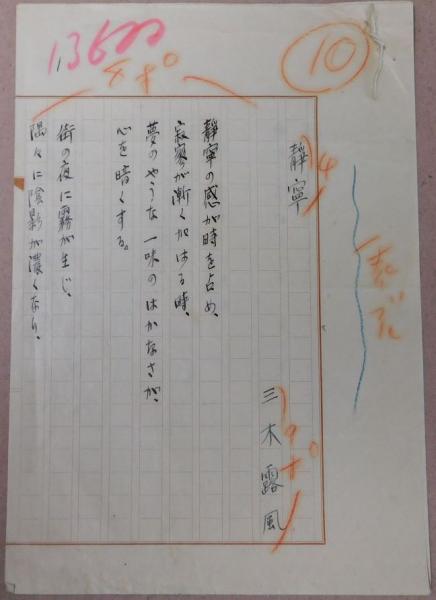 10
13 6
8ポ
静寧
4
三木露風
9ポ
靜寧の感が時を占め、
寂寥が漸く加はる時、
夢のやうな一味のはかなさが、
心を暗くする。
街の夜に霧が生じ、
隅々に陰影が濃くなり、